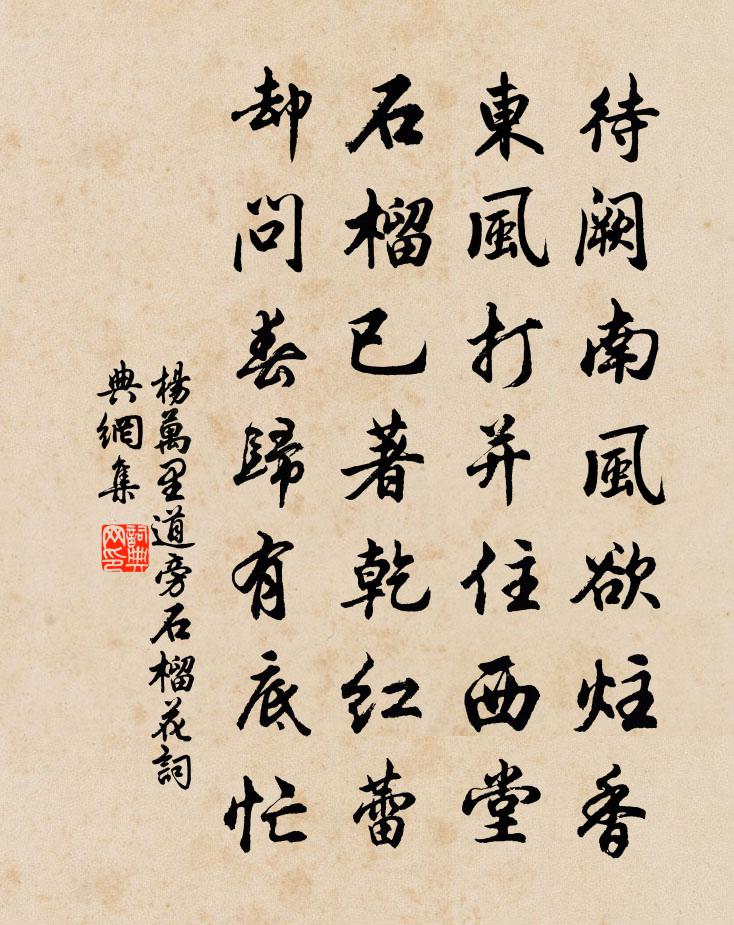 待阙南風欲炷香
東風打并住西堂
石榴已著乾紅蕾
却問春歸有底忙
楊萬里道旁石榴花詞
典網集
詞典网印